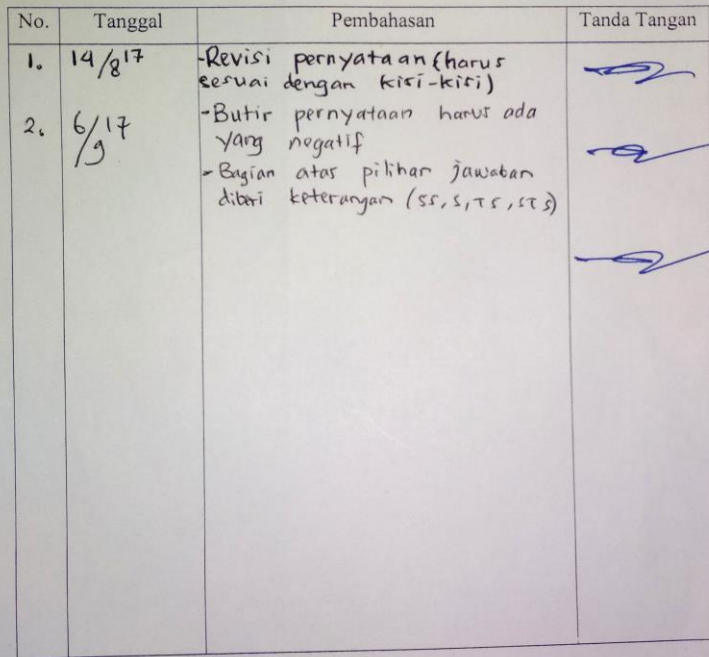 No. Tanggal Pembahasan Tanda Tangan
1. 14/8 17 -Revisi pernyataan (harus
sesuai dengan kisi-kisi)
2. 6/9 17 -Butir pernyataan harus ada
yang negatif
- Bagian atas pilihan jawaban
diberi keterangan (SS, S, TS, STS)